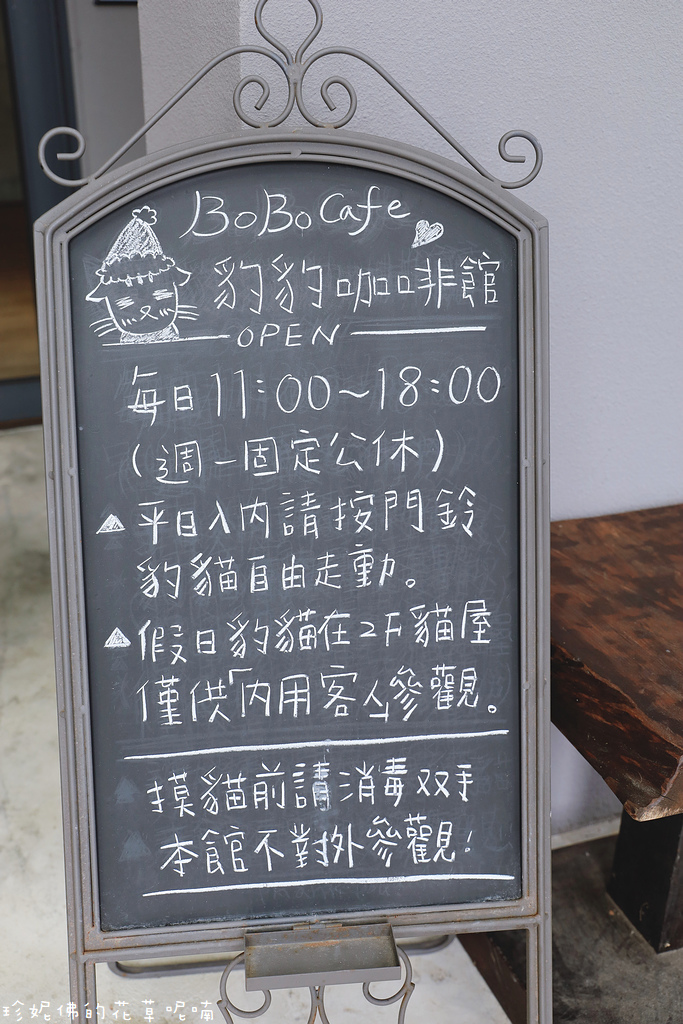 BoBo Cafe
豹豹咖啡館
OPEN
每日11:00~18:00
(週一固定公休)
▲平日入內請按門鈴
豹貓自由走動。
▲假日豹貓在2F貓屋
僅供「內用客人」參觀。
摸貓前請消毒双手
本館不對外參觀!
珍妮佛的花草呢喃